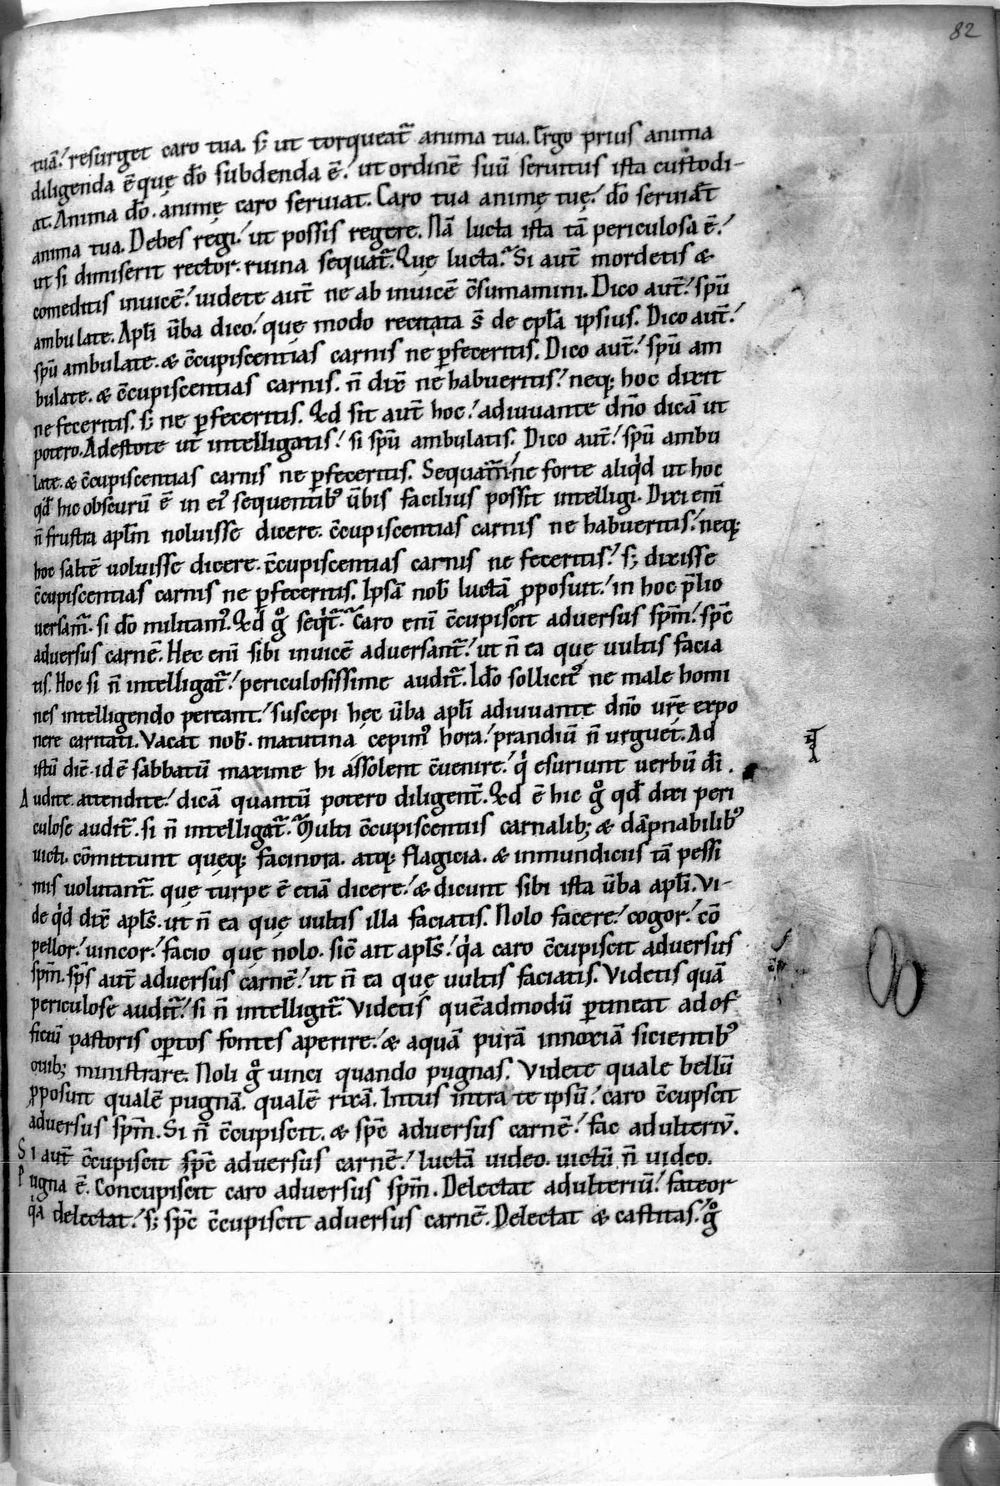 82
tuā. resurget caro tua. s; ut torqueat̄ anima tua. Ergo prius anima
diligenda ē quę dō subdenda ē. ut ordinē suū seruitus ista custodi-
at. Anima dō. animę caro seruiat. Caro tua animę tuę. dō seruiat
anima tua. Debes regi. ut possis regere. Nā lucta ista tā periculosa ē.
ut si dimiserit rector. ruina sequat̄. Quę lucta. Si aut̄ mordetis &
comeditis inuicē. uidete aut̄ ne ab inuicē c̄sumamini. Dico aut̄. spū
ambulate. Apłi ūba dico. quę modo recitata s̄ de epła ipsius. Dico aut̄.
spū ambulate. & c̄cupiscentias carnis ne ꝑfeceritis. Dico aut̄. spū am
bulate. & c̄cupiscentias carnis. n̄ dix̄ ne habueritis. neq; hoc dixit
ne feceritis. s; ne ꝑfeceritis. Qd sit aut̄ hoc. adiuuante dn̄o dicā ut
potero. Adestote ut intelligatis. si spū ambulatis. Dico aut̄. spū ambu
late. & c̄cupiscentias carnis ne ꝑfeceritis. Sequam̄ ne forte aliqd ut hoc
qđ hic obscurū ē in ei' sequentib' ūbis facilius possit intelligi. Dixi eni
n̄ frustra apłm noluisse dicere. c̄cupiscentias carnis ne habueritis. neq;
hoc saltē uoluisse dicere. c̄cupiscentias carnis ne feceritis. s; dixisse
c̄cupiscentias carnis ne ꝑfeceritis. Ipsā nob̄ luctā ꝓposuit. in hoc p̄lio
uersam̄. si dō militam'. Qd ḡ seqit̄. Caro eni c̄cupiscit aduersus spm̄. spc̄
aduersus carnē. Hec eni sibi inuicē aduersant̄. ut n̄ ea quę uultis facia
tis. Hoc si n̄ intelligat̄. periculosissime audit̄. Ido sollicit' ne male homi
nes intelligendo pereant. suscepi hęc ūba apłi adiuuante dn̄o ur̄e expo
nere caritati. Vacat nob̄. matutina cepim' hora. prandiū n̄ urguet. Ad
istū diē. id ē sabbatū maxime hi assolent c̄uenire. qi esuriunt uerbū dī.
Audite. attendite. dicā quantū potero diligent̄. Qd ē hic ḡ qđ dixi peri
culose audit̄. si n̄ intelligat̄. Multi c̄cupiscentiis carnalib; & dāpnabilib'
uicti. cōmittunt queq; facinora. atq; flagicia. & inmundiciis tā pessi
mis uolutant̄. quę turpe ē etiā dicere. & dicunt sibi ista ūba apłi. Vi-
de qd dix̄ apłs. ut n̄ ea quę uultis illa faciatis. Nolo facere. cogor. cō
pellor. uincor. facio quę nolo. sic̄ ait apłs. qa caro c̄cupiscit aduersus
spm̄. sps̄ aut̄ aduersus carnē. ut n̄ ea quę uultis faciatis. Videtis quā
periculose audit̄. si n̄ intelligit̄. Videtis quēadmodū ꝑtineat ad of
ficiū pastoris optos fontes aperire. & aquā purā innoxiā sicientib'
ouib; ministrare. Noli ḡ uinci quando pugnas. Videte quale bellū
ꝓposuit qualē pugnā. qualē rixā. Intus intra te ipsū. caro c̄cupscit
aduersus spm̄. Si n̄ c̄cupiscit. & spc̄ aduersus carnē. fac adulteriv̄.
Si aut̄ c̄cupiscit spc̄ aduersus carnē. luctā uideo. uictū n̄ uideo.
Pugna ē. Concupiscit caro aduersus spm̄. Delectat adulteriū. fateor
qa delectat. s; spc̄ c̄cupiscit aduersus carnē. Delectat & castitas. ḡ